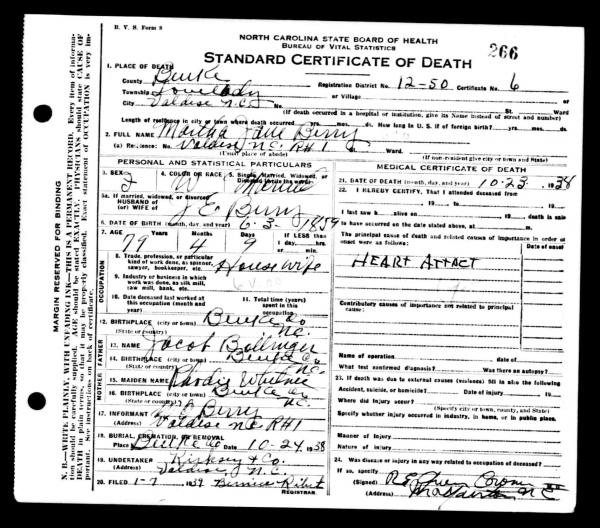 B. V. S. Form 8
NORTH CAROLINA STATE BOARD OF HEALTH
BUREAU OF VITAL STATISTICS
266
STANDARD CERTIFICATE OF DEATH
1. PLACE OF DEATH
County Burke Registration District No. 12-50 Certificate No. 6
Township Lovelady or Village
City Valdese N.C. No. St. Ward
(If death occurred in a hospital or institution, give its Name instead of street and number)
Length of residence in city or town where death occurred yrs. mos. ds. How long in U. S. if of foreign birth? yrs. mos. ds.
2. FULL NAME Martha Jane Berry
(a) Residence: No. Valdese N.C. R#1 St. Ward.
(Usual place of abode) (If non-resident give city or town and State)
PERSONAL AND STATISTICAL PARTICULARS
3. SEX F 4. COLOR OR RACE W 5. Single, Married, Widowed,
5a. If married, widowed, or divorced
HUSBAND of
(or) WIFE of J. E. Berry
6. DATE OF BIRTH (month, day, and year) 6-3-1859
7. AGE Years Months Days If LESS than
79 4 9 1 day, hrs.
or min.
OCCUPATION
8. Trade, profession, or particular
kind of work done, as spinner,
sawyer, bookkeeper, etc. House wife
9. Industry or business in which
work was done, as silk mill,
saw mill, bank, etc.
10. Date deceased last worked at 11. Total time (years)
this occupation (month and spent in this
year) occupation
12. BIRTHPLACE (city or town) Burke Co
(State or country) N.C.
FATHER
13. NAME Jacob Bollinger
14. BIRTHPLACE (city or town) Burke Co
(State or country) N.C.
MOTHER
15. MAIDEN NAME
16. BIRTHPLACE (city or town) Burke Co
(State or country) N.C.
17. INFORMANT Berry
(Address) Valdese N.C. R#1
18. BURIAL, CREMATION, OR REMOVAL
Place Burke Co Date 10-24, 1938
19. UNDERTAKER Kirksey & Co.
(Address) N.C.
20. FILED 1-7 1939 Bernice
REGISTRAR.
MEDICAL CERTIFICATE OF DEATH
21. DATE OF DEATH (month, day, and year) 10-23, 1938
22. I HEREBY CERTIFY, That I attended deceased from
, 19 , to , 19
I last saw h alive on , 19 death is said
to have occurred on the date stated above, at m.
The principal cause of death and related causes of importance in order of
onset were as follows: Date of onset
HEART ATTACT
Contributory causes of importance not related to principal
cause:
Name of operation date of
What test confirmed diagnosis? Was there an autopsy?
23. If death was due to external causes (violence) fill in also the following
Accident, suicide, or homicide? Date of injury 19
Where did injury occur?
(Specify city or town, county, and State)
Specify whether injury occurred in industry, in home, or in public place.
Manner of injury
Nature of injury
24. Was disease or injury in any way related to occupation of deceased?
If so, specify
(Signed)
(Address) N.C.
MARGIN RESERVED FOR BINDING
N. B.—WRITE PLAINLY, WITH UNFADING INK—THIS IS A PERMANENT RECORD. Every item of information should be carefully supplied. AGE should be stated EXACTLY. PHYSICIANS should state CAUSE OF DEATH in plain terms, so that it may be properly classified. Exact statement of OCCUPATION is very important. See instructions on back of certificate.